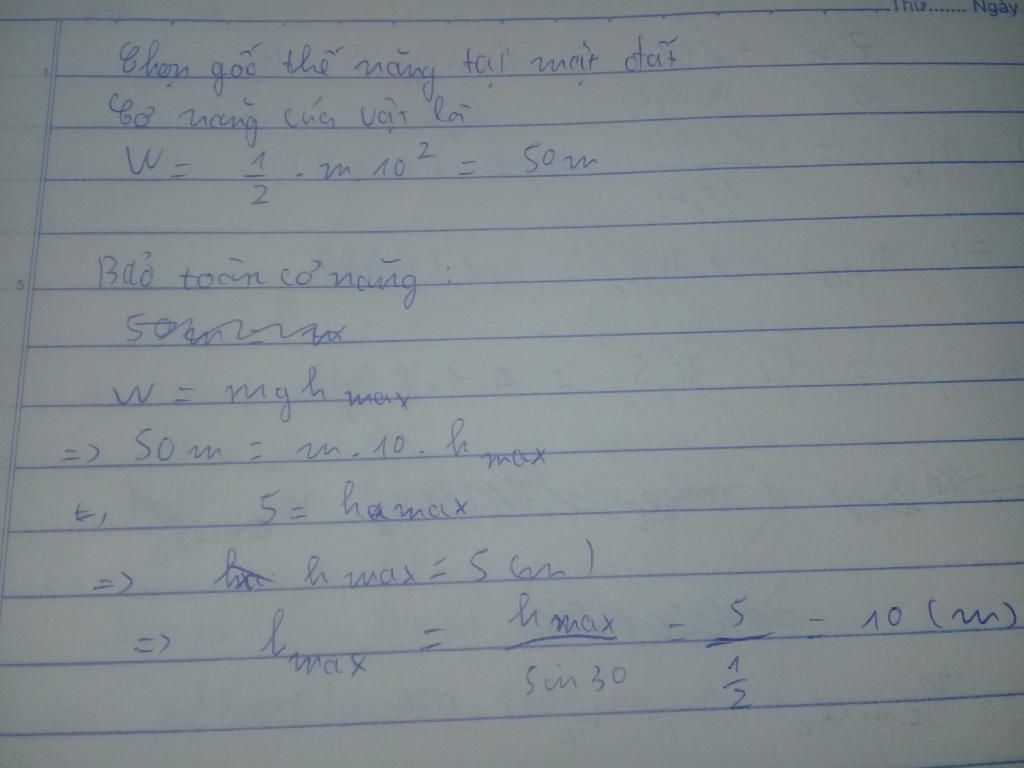 Thứ....... Ngày
Chọn gốc thế năng tại mặt đất
Cơ năng của vật là
W = 1/2 . m 10² = 50m
Bảo toàn cơ năng :
W = mgh max
=> 50m = m . 10 . h max
5 = h max
=> h max = 5 (m)
=> l max = h max / sin 30 = 5 / 1/2 = 10 (m)